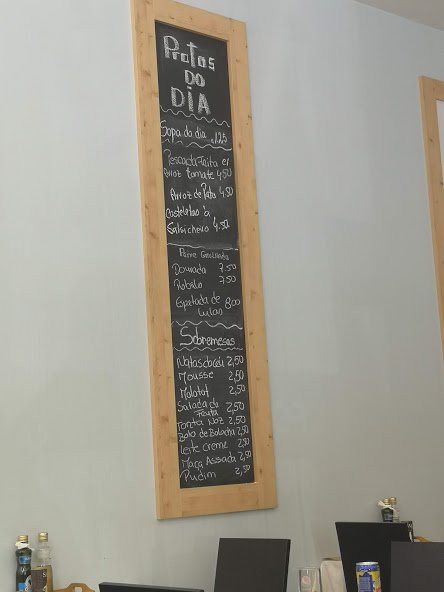 Pratos
DO
DIA
Sopa do dia 1,25
Pescada Frita c/
Arroz tomate 4,50
Arroz de Pato 4,50
Costeletao à
Salsicheiro 4.50
Peixe Grelhado
Dourada 7.50
Robalo 7.50
Espetada de 8.00
Lulas
Sobremesas
Natas do céu 2,50
Mousse 2,50
Molotof 2,50
Salada de
Fruta 2,50
Torta Noz 2,50
Bolo de Bolacha 2,50
Leite creme 2,50
Maça Assada 2,50
Pudim 2,50